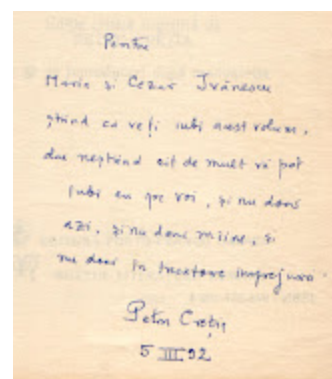 Pentru
Maria și Cezar Ivănescu
știind că veți iubi acest volum,
dar neștiind cît de mult vă pot
iubi eu pe voi, și nu doar
azi, și nu doar mîine, și
nu doar în trecătoare împrejurări.
Petru Creția
5 III 92